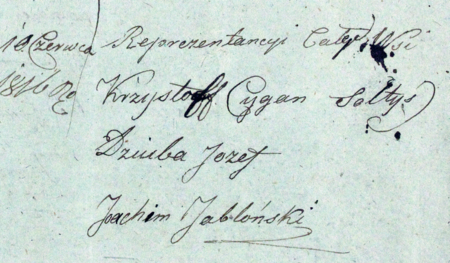 10 Czerwca Reprezentancyi Całey Wsi
1816 Ro Krzysztoff Cygan Sołtys
Dziuba Jozef
Joachim Jabłoński